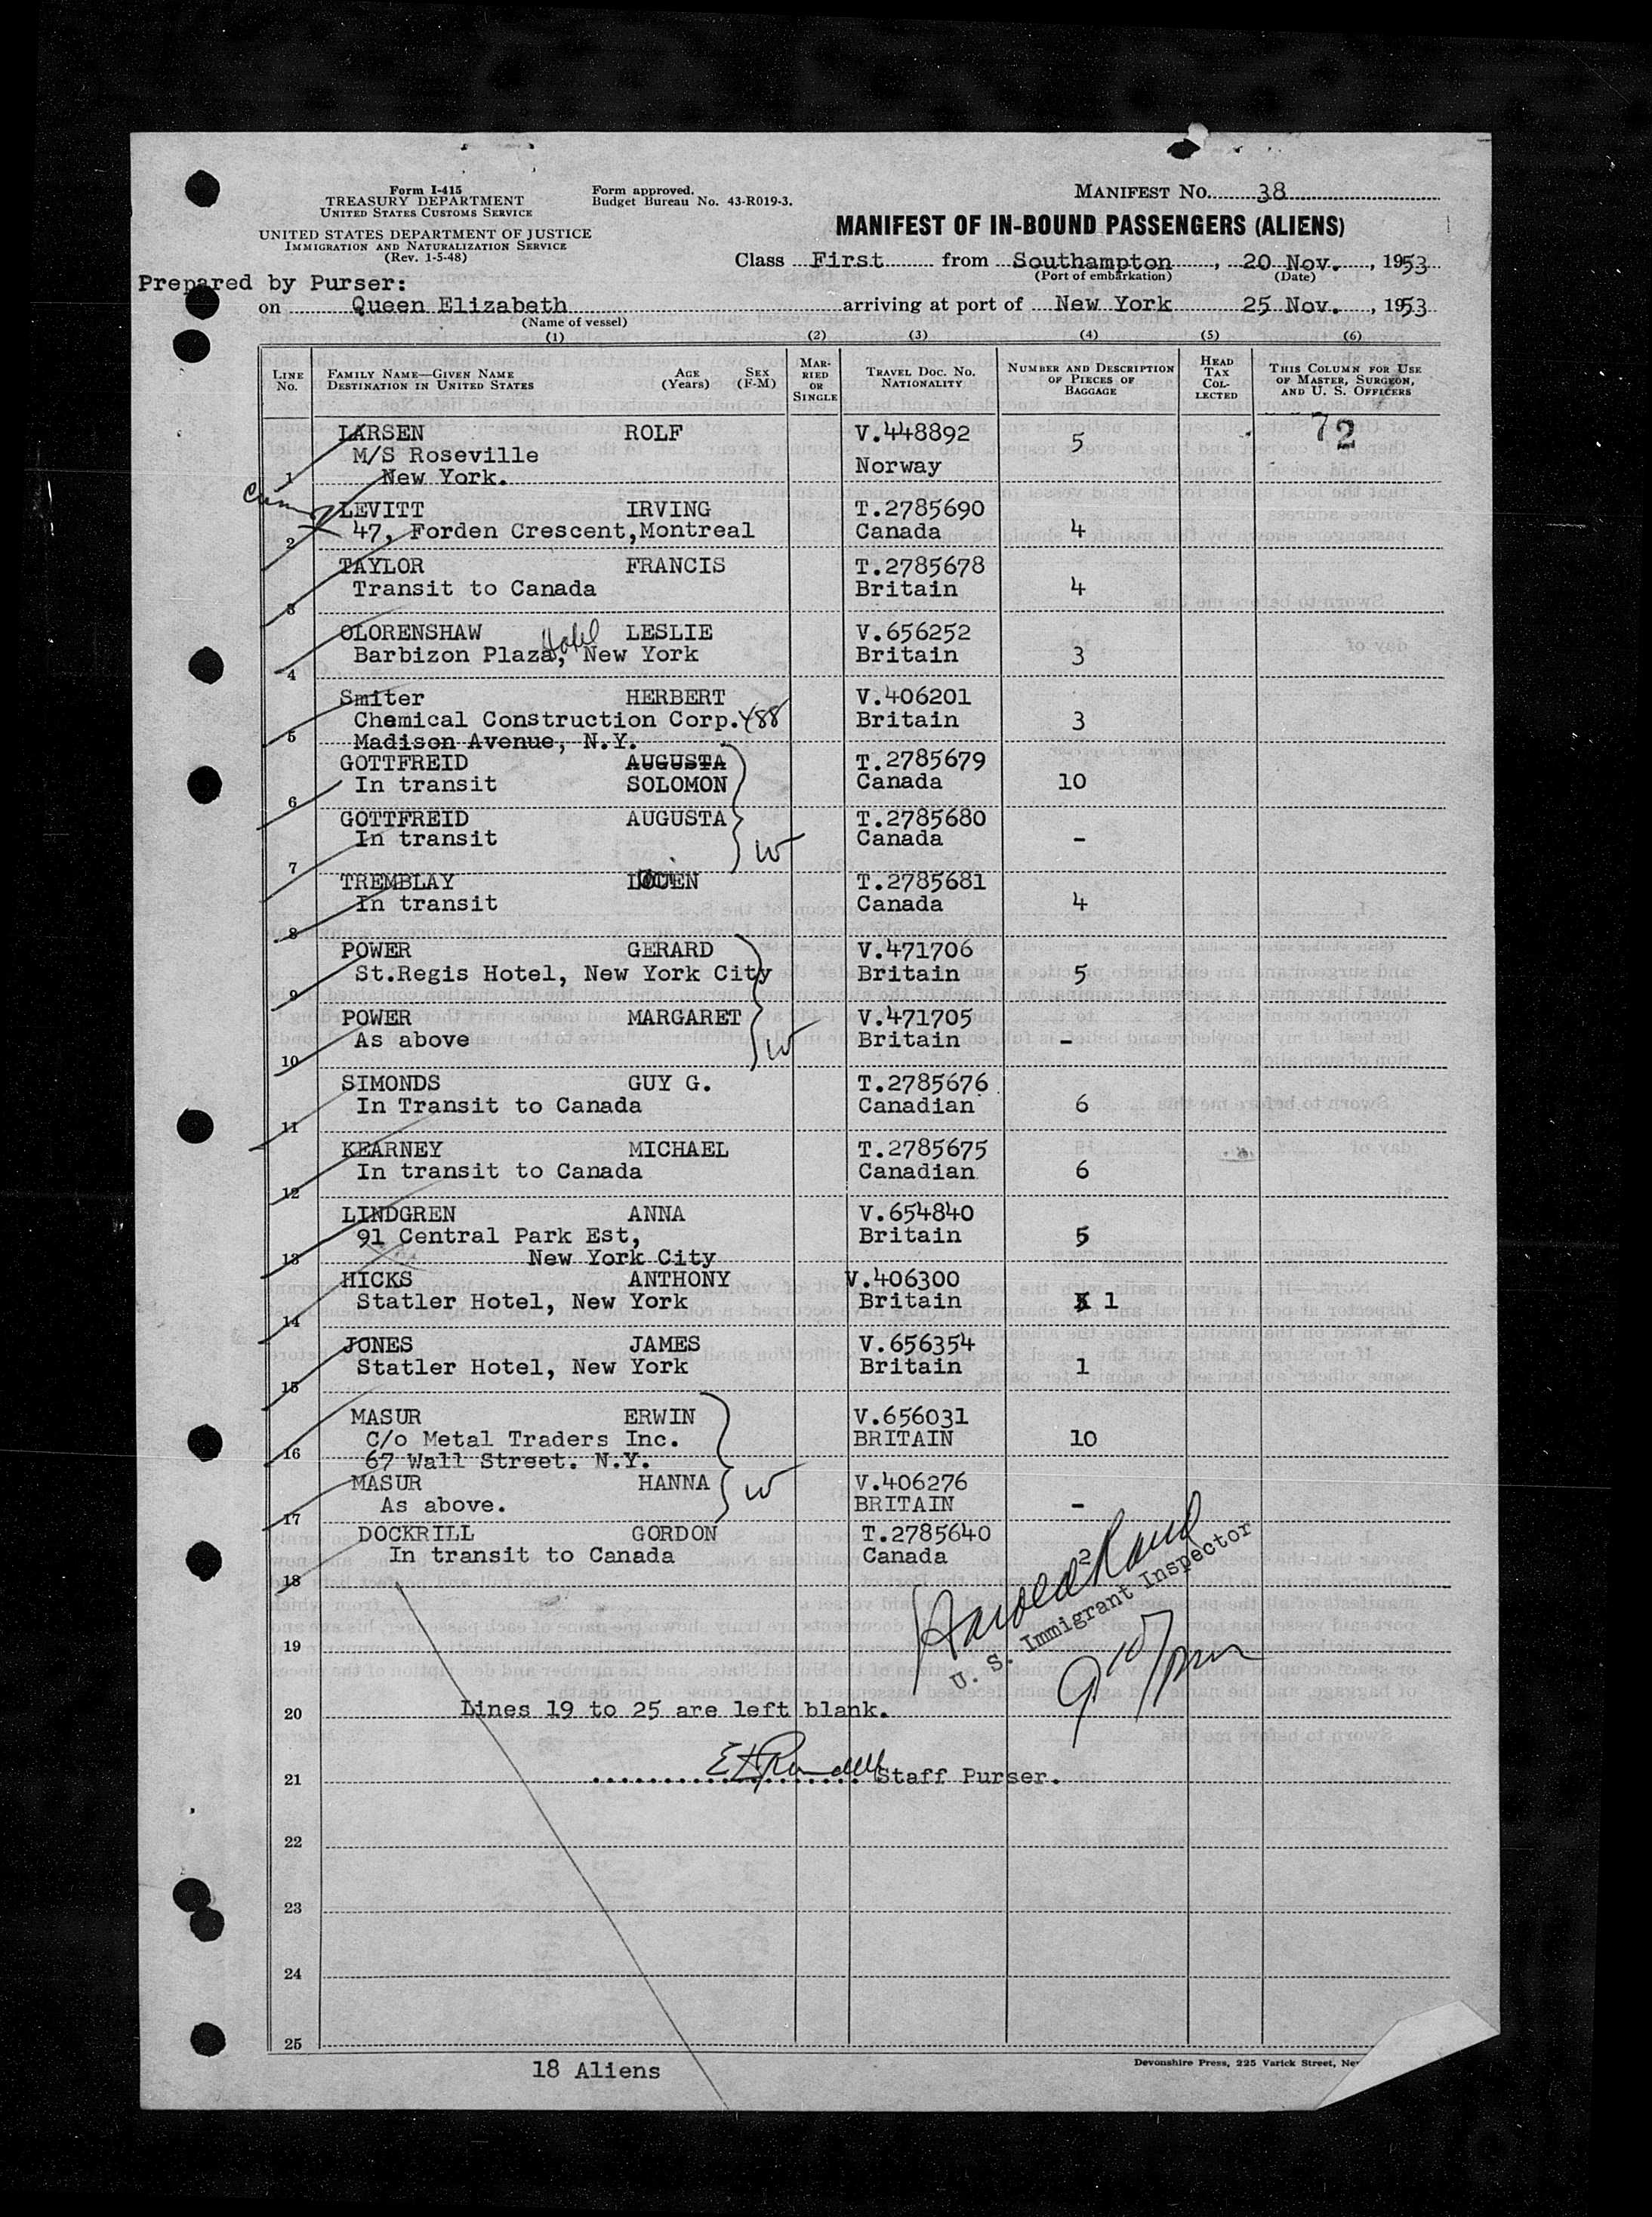 Form I-415
TREASURY DEPARTMENT
UNITED STATES CUSTOMS SERVICE
UNITED STATES DEPARTMENT OF JUSTICE
IMMIGRATION AND NATURALIZATION SERVICE
(Rev. 1-5-48)
Form approved.
Budget Bureau No. 43-R019-3.
MANIFEST No. 38
MANIFEST OF IN-BOUND PASSENGERS (ALIENS)
Class First from Southampton, 20 Nov., 1953
(Port of embarkation) (Date)
Prepared by Purser:
on Queen Elizabeth arriving at port of New York 25 Nov., 1953
(Name of vessel)
(1) (2) (3) (4) (5) (6)
LINE No. FAMILY NAME—GIVEN NAME DESTINATION IN UNITED STATES AGE (Years) SEX (F-M) MARRIED OR SINGLE TRAVEL DOC. NO. NATIONALITY NUMBER AND DESCRIPTION OF PIECES OF BAGGAGE HEAD TAX COLLECTED THIS COLUMN FOR USE OF MASTER, SURGEON, AND U. S. OFFICERS
LARSEN ROLF V.448892 5 72
M/S Roseville Norway
1 New York.
LEVITT IRVING T.2785690
2 47, Forden Crescent, Montreal Canada 4
TAYLOR FRANCIS T.2785678
Transit to Canada Britain 4
3
OLORENSHAW LESLIE V.656252
Barbizon Plaza, Hotel New York Britain 3
4
Smiter HERBERT V.406201
Chemical Construction Corp. 488 Britain 3
5 Madison Avenue, N.Y.
GOTTFREID AUGUSTA T.2785679
6 In transit SOLOMON Canada 10
GOTTFREID AUGUSTA T.2785680
In transit W Canada -
7
TREMBLAY T.2785681
In transit Canada 4
8
POWER GERARD V.471706
St.Regis Hotel, New York City Britain 5
9
POWER MARGARET V.471705
10 As above W Britain -
SIMONDS GUY G. T.2785676
In Transit to Canada Canadian 6
11
KEARNEY MICHAEL T.2785675
In transit to Canada Canadian 6
12
LINDGREN ANNA V.654840
91 Central Park Est, Britain 5
13 New York City
HICKS ANTHONY V.406300
Statler Hotel, New York Britain 1
14
JONES JAMES V.656354
Statler Hotel, New York Britain 1
15
MASUR ERWIN V.656031
C/o Metal Traders Inc. BRITAIN 10
16 67 Wall Street. N.Y.
MASUR HANNA W V.406276
17 As above. BRITAIN -
DOCKRILL GORDON T.2785640
In transit to Canada Canada 2
18
Harold Rand
U. S. Immigrant Inspector
19
20 Lines 19 to 25 are left blank.
21 Staff Purser.
22
23
24
25
18 Aliens
Devonshire Press, 225 Varick Street,